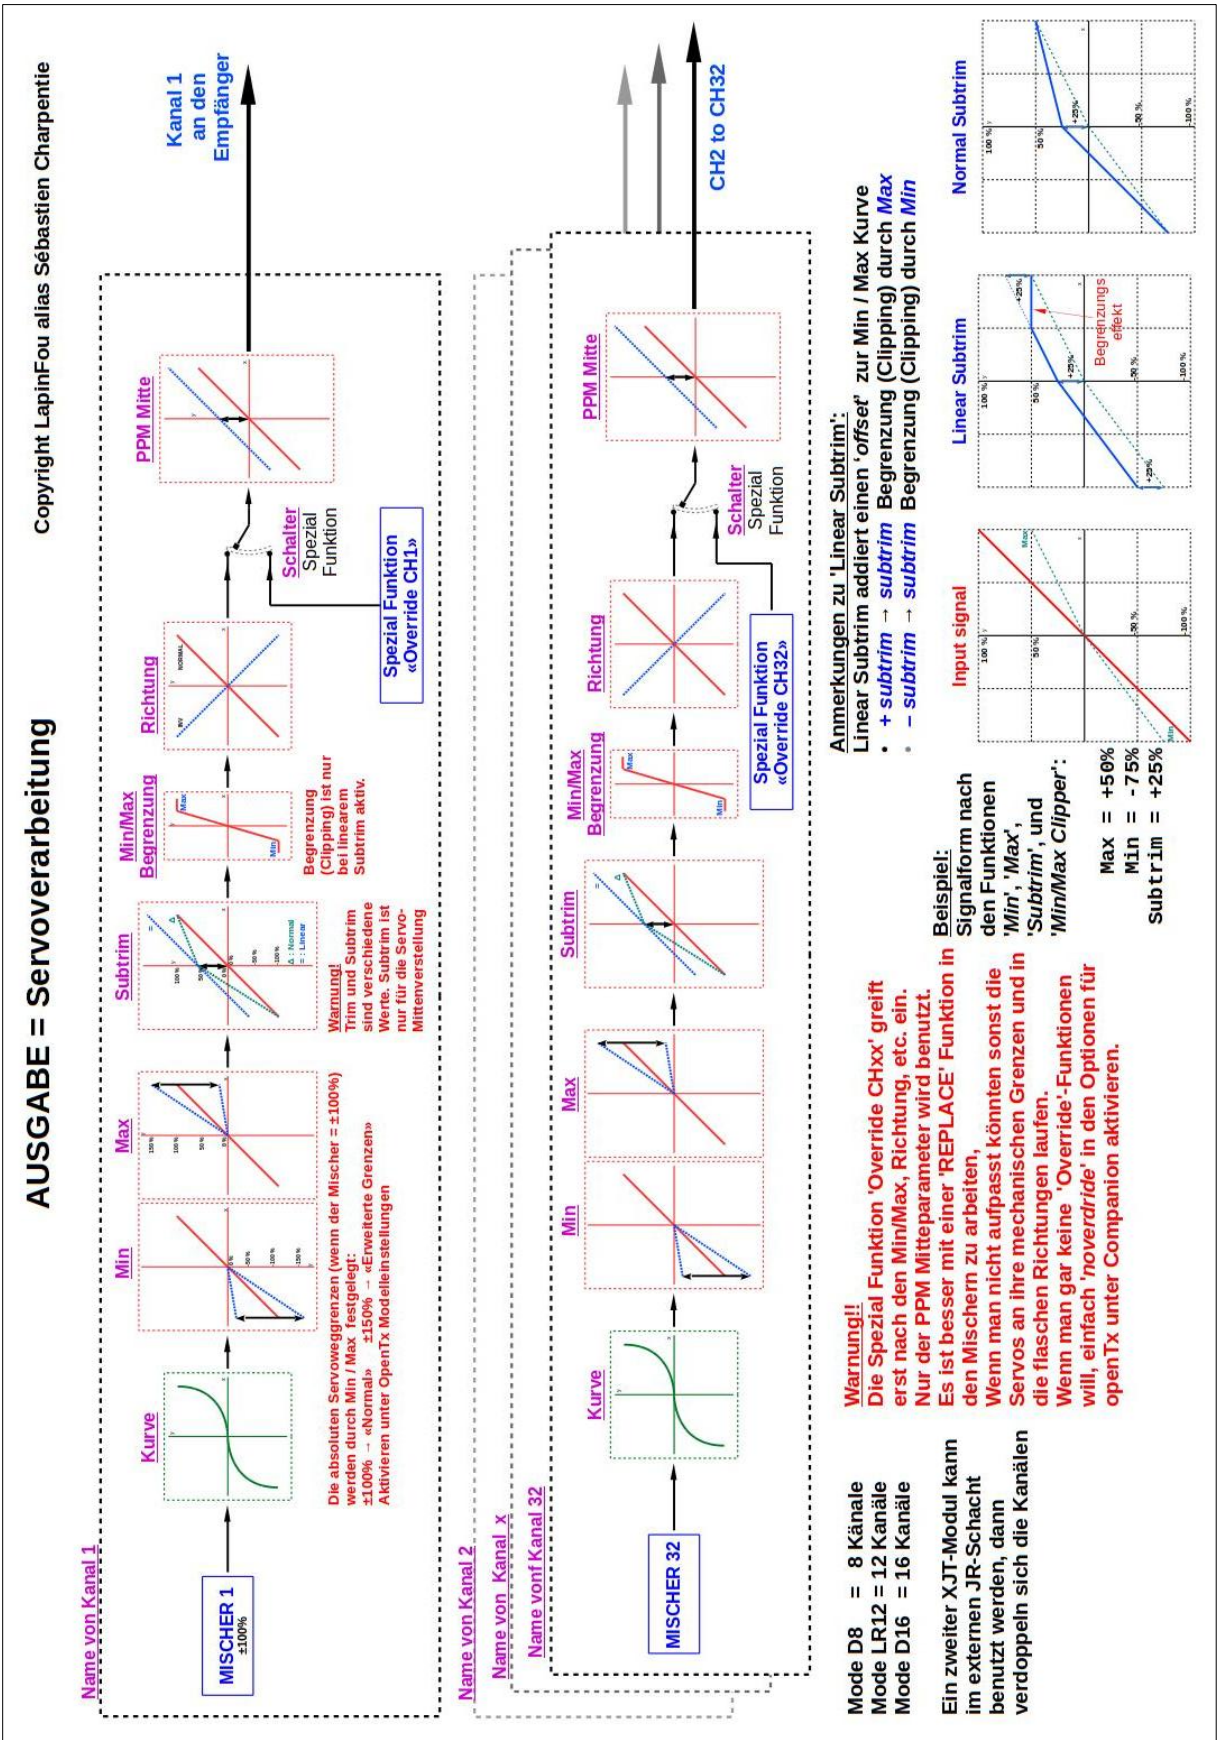 AUSGABE = Servoverarbeitung
Copyright LapinFou alias Sébastien Charpentie
Name von Kanal 1
MISCHER 1
±100%
Kurve
Min
Max
Subtrim
Min/Max
Begrenzung
Richtung
Schalter
Spezial
Funktion
PPM Mitte
Kanal 1
an den
Empfänger
y
x
0 %
-50 %
-100 %
-150 %
150 %
100 %
50 %
0 %
100 %
50 %
0 %
0 %
-50 %
-100 %
=
Δ
Δ : Normal
= : Linear
Max
Min
INV
NORMAL
Die absoluten Servoweggrenzen (wenn der Mischer = ±100%)
werden durch Min / Max festgelegt:
±100% → «Normal» ±150% → «Erweiterte Grenzen»
Aktivieren unter OpenTx Modelleinstellungen
Warnung!
Trim und Subtrim
sind verschiedene
Werte. Subtrim ist
nur für die Servo-
Mittenverstellung
Begrenzung
(Clipping) ist nur
bei linearem
Subtrim aktiv.
Spezial Funktion
«Override CH1»
Name von Kanal 2
Name von Kanal x
Name vonf Kanal 32
MISCHER 32
Kurve
Min
Max
Subtrim
=
Δ
Min/Max
Begrenzung
Max
Min
Richtung
Schalter
Spezial
Funktion
PPM Mitte
Spezial Funktion
«Override CH32»
CH2 to CH32
Mode D8 = 8 Känale
Mode LR12 = 12 Kanäle
Mode D16 = 16 Kanäle
Ein zweiter XJT-Modul kann
im externen JR-Schacht
benutzt werden, dann
verdoppeln sich die Kanälen
Warnung!!
Die Spezial Funktion 'Override CHxx' greift
erst nach den Min/Max, Richtung, etc. ein.
Nur der PPM Mitteparameter wird benutzt.
Es ist besser mit einer 'REPLACE' Funktion in
den Mischern zu arbeiten,
Wenn man nicht aufpasst könnten sonst die
Servos an ihre mechanischen Grenzen und in
die flaschen Richtungen laufen.
Wenn man gar keine 'Override'-Funktionen
will, einfach 'noverdride' in den Optionen für
openTx unter Companion aktivieren.
Anmerkungen zu 'Linear Subtrim':
Linear Subtrim addiert einen 'offset' zur Min / Max Kurve
• + subtrim → subtrim Begrenzung (Clipping) durch Max
• – subtrim → subtrim Begrenzung (Clipping) durch Min
Beispiel:
Signalform nach
den Funktionen
'Min', 'Max',
'Subtrim', und
'Min/Max Clipper':
Max = +50%
Min = -75%
Subtrim = +25%
Input signal
100 %
50 %
-50 %
-100 %
Max
Min
Linear Subtrim
100 %
50 %
-50 %
-100 %
+25%
+25%
+25%
Begrenzungs
effekt
Normal Subtrim
100 %
50 %
-50 %
-100 %
+25%